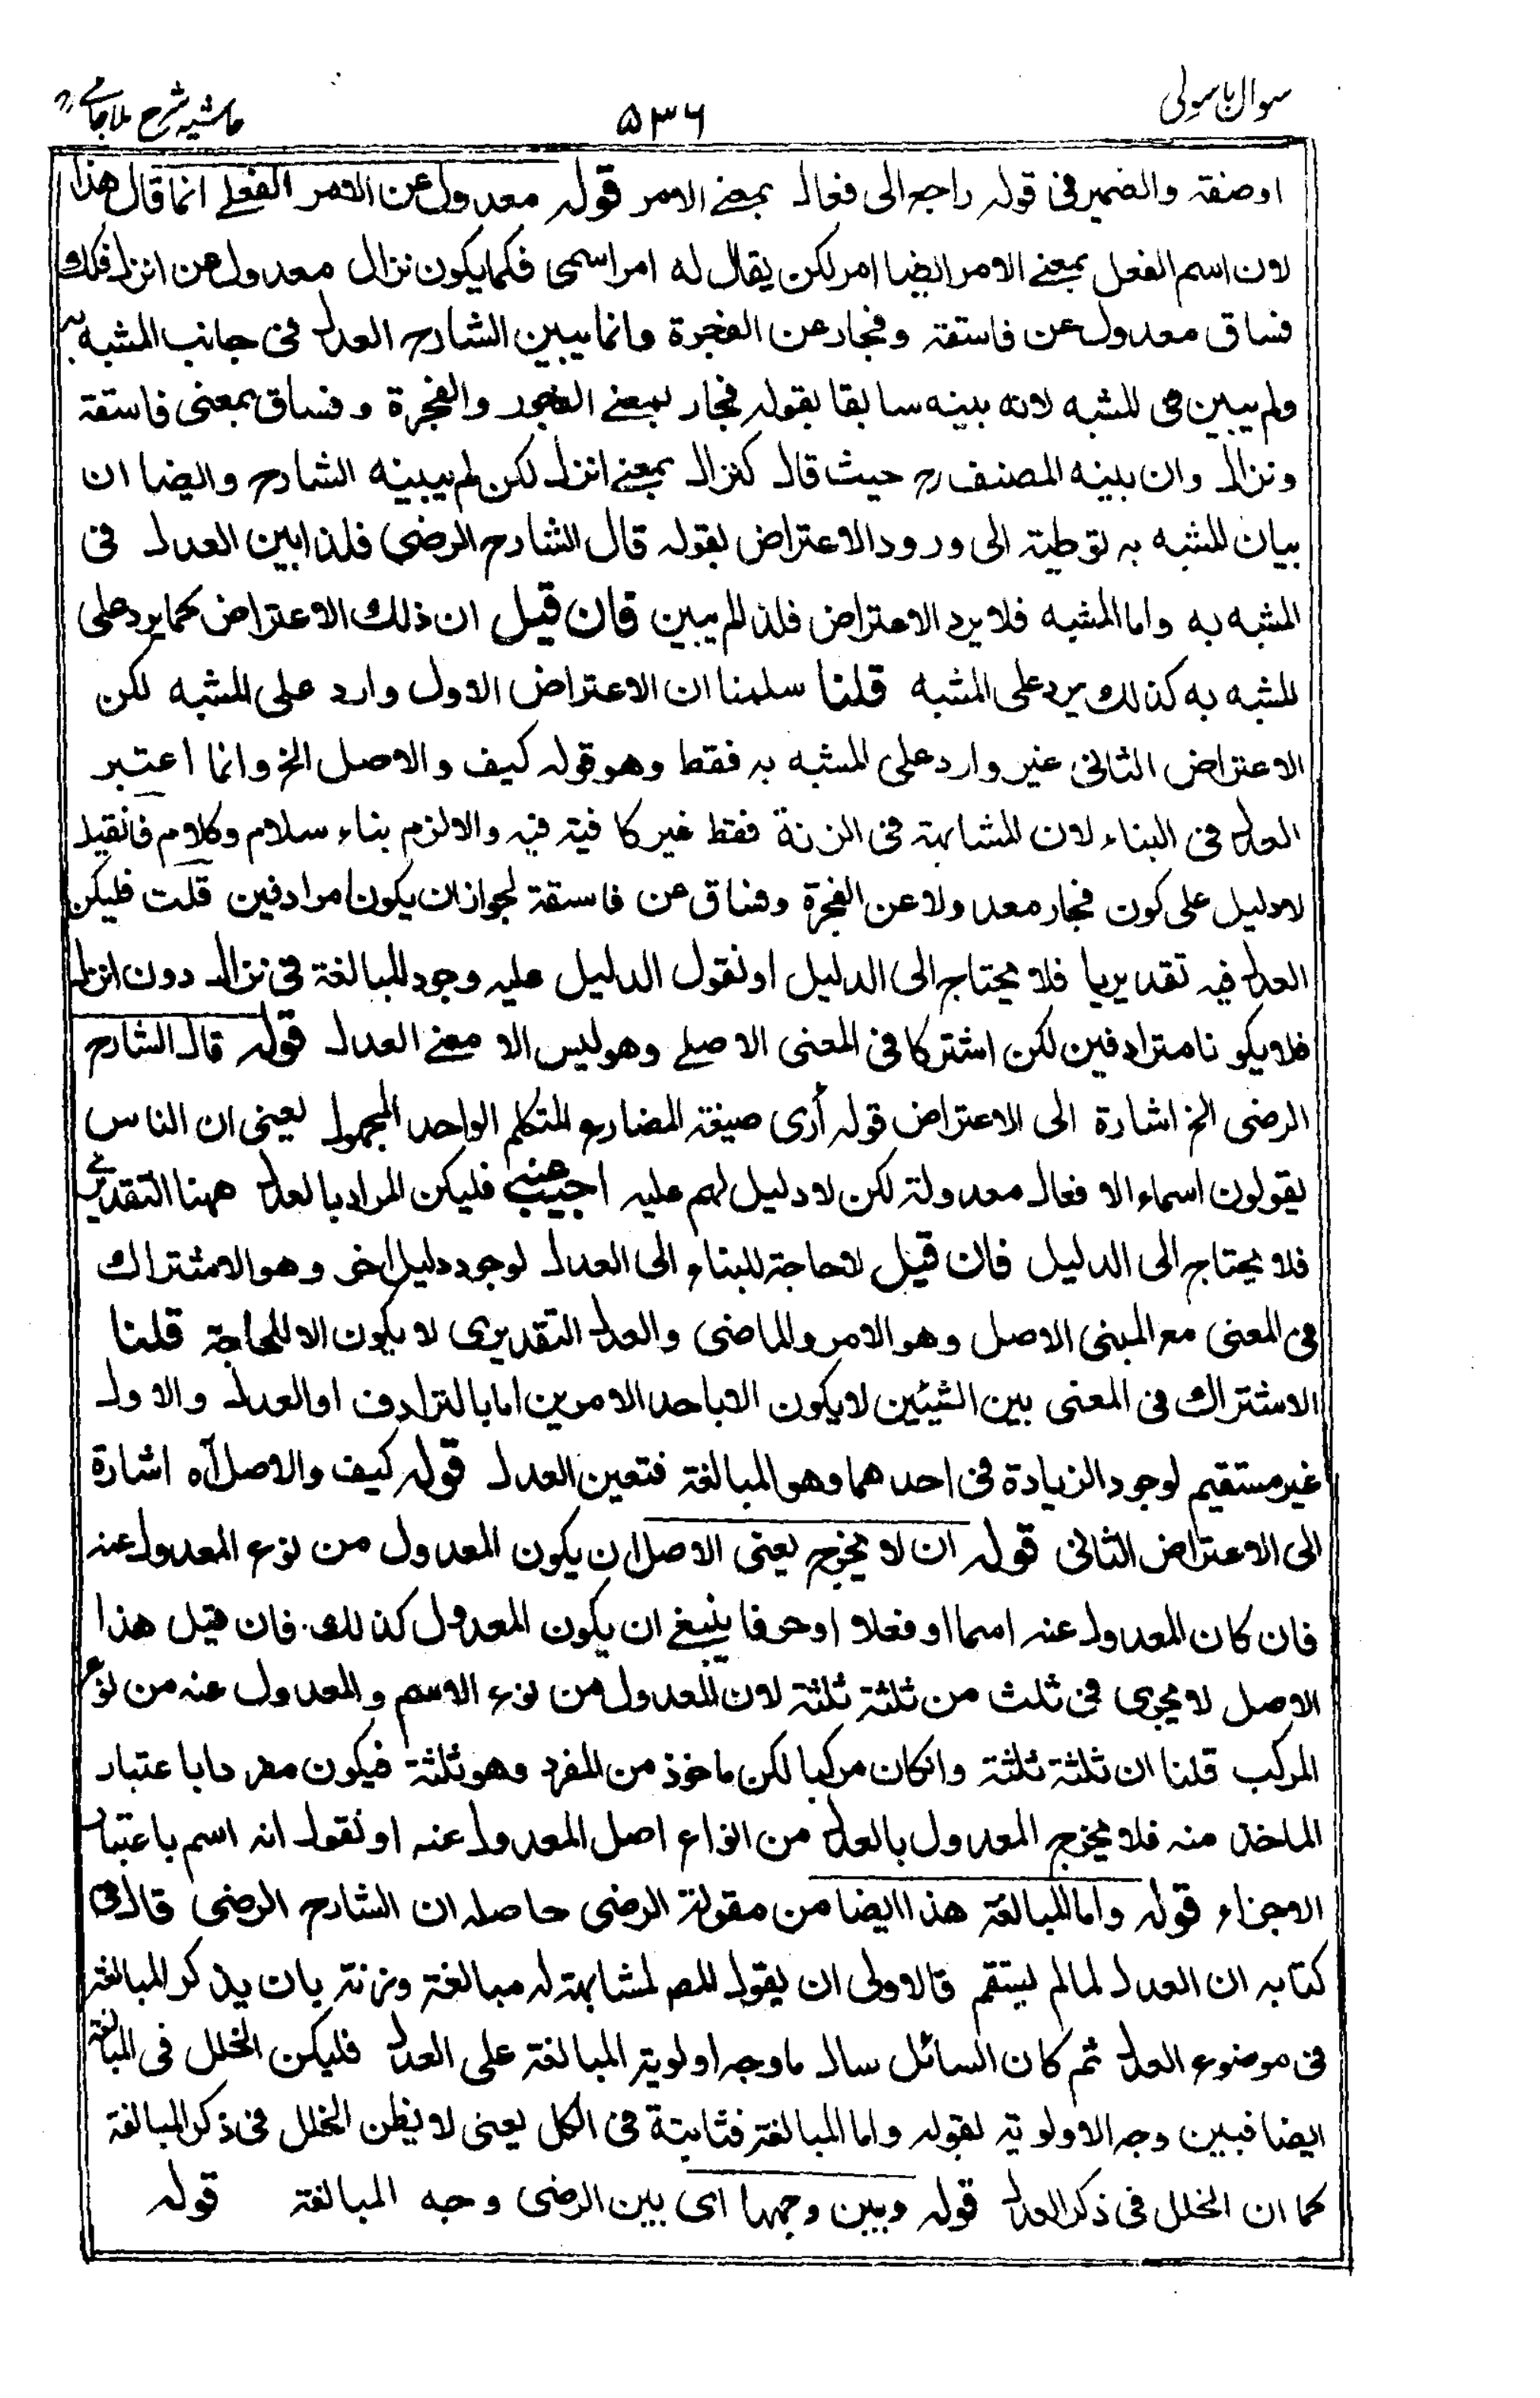 سوال باسولی
۵۳۶
حاشیہ شرح ملا جامی
اوصفة والضمير فى قوله راجع الى فعال بمعنے الامر قوله معدول عن الامر الفعلے انما قال هذا
لان اسم الفعل بمعنے الامر ايضا امر لكن يقال له امر اسمى فكما يكون نزال معدول عن انزل فكذا
فساق معدول عن فاسقة وفجار عن الفجرة وانما يبين الشارح العدل فى جانب المشبه به
ولم يبين فى المشبه لانه بينه سابقا بقوله فجار بمعنے الفجور والفجرة وفساق بمعنى فاسقة
ونزال وان بينه المصنف رح حيث قال كنزال بمعنے انزل لكن لم يبينه الشارح وايضا ان
بيان المشبه به توطية الى ورود الاعتراض بقوله قال الشارح الرضى فلذا بين العدل فى
المشبه به واما المشبه فلا يرد الاعتراض فلذا لم يبين فان قيل ان ذلك الاعتراض كما يرد على
المشبه به كذلك يرد على المشبه قلنا سلمنا ان الاعتراض الاول وارد على المشبه لكن
الاعتراض الثانى غير وارد على المشبه به فقط وهو قوله كيف والاصل الخ وانما اعتبر
العدل فى البناء لان المشابهة فى الزنة فقط غير كافية فيه والا لزم بناء سلام وكلام فانقيل
لا دليل على كون فجار معدولا عن الفجرة وفساق عن فاسقة لجواز ان يكونا مرادفين قلت فليكن
العدل فيه تقديريا فلا يحتاج الى الدليل اونقول الدليل عليه وجود المبالغة فى نزال دون انزل
فلا يكونا مترادفين لكن اشتركا فى المعنى الاصلے وهو ليس الا معنے العدل قوله قال الشارح
الرضى الخ اشارة الى الاعتراض قوله أرى صيغة المضارع المتكلم الواحد المجهول يعنى ان الناس
يقولون اسماء الافعال معدولة لكن لا دليل لهم عليه اجيب عنه فليكن المراد بالعدل ههنا التقديرى
فلا يحتاج الى الدليل فان قيل لا حاجة للبناء الى العدل لوجود دليل اخر وهو الاشتراك
فى المعنى مع المبنى الاصل وهو الامر والماضى والعدل التقديرى لا يكون الا للحاجة قلنا
الاشتراك فى المعنى بين الشيئين لا يكون الا باحد الامرين اما بالترادف او العدل والاول
غير مستقيم لوجود الزيادة فى احدهما وهو المبالغة فتعين العدل قوله كيف والاصل آه اشارة
الى الاعتراض الثانى قوله ان لا يخرج يعنى الاصل ان يكون المعدول من نوع المعدول عنه
فان كان المعدول عنه اسما او فعلا اوحرفا ينبغے ان يكون المعدول كذلك فان قيل هذا
الاصل لا يجرى فى ثلث من ثلثة ثلثة لان المعدول من نوع الاسم والمعدول عنه من نوع
المركب قلنا ان ثلثة ثلثة وانكان مركبا لكن ماخوذ من المفرد وهو ثلثة فيكون مفردا باعتبار
الماخذ منه فلا يخرج المعدول بالعدل من انواع اصل المعدول عنه اونقول انه اسم باعتبار
الاجزاء قوله واما المبالغة هذا ايضا من مقولة الرضى حاصله ان الشارح الرضى قال فى
كتابه ان العدل لما لم يستقم فالاولى ان يقول المص لمشابهته له مبالغة وزنة بان يذكر المبالغة
فى موضوع العدل ثم كان السائل سال ما وجه اولوية المبالغة على العدل فليكن الخلل فى المبالغة
ايضا فبين وجه الاولوية بقوله واما المبالغة فثابتة فى الكل يعنى لا يظن الخلل فى ذكر المبالغة
كما ان الخلل فى ذكر العدل قوله وبين وجهها اى بين الرضى وجه المبالغة قوله